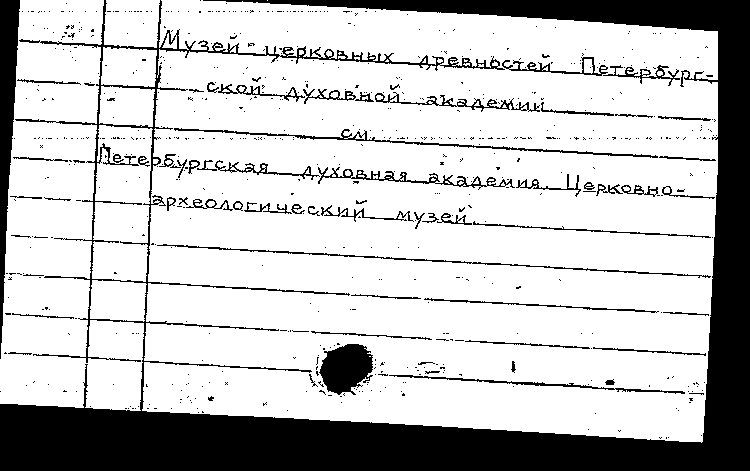 Музей церковных древностей Петербург-
ской духовной академии
см.
Петербургская духовная академия. Церковно-
археологический музей.